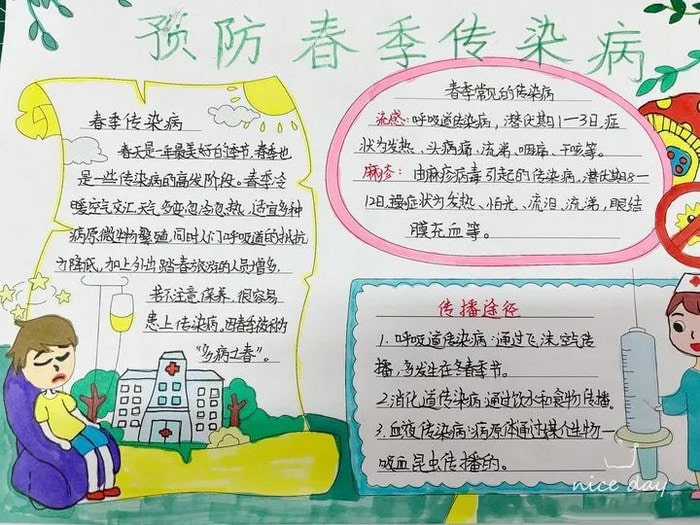 预防春季传染病
春季传染病
春天是一年最美好的季节,春季也
是一些传染病的高发阶段。春季冷
暖空气交汇,天气多变,忽冷忽热,适宜多种
病原微生物繁殖,同时人们呼吸道的抵抗
力降低,加上外出踏春旅游的人员增多,
若不注意保养,很容易
患上传染病,因春季被称为
“多病之春”。
春季常见的传染病
流感:呼吸道传染病,潜伏期1—3日,症
状为发热、头病痛、流涕、咽痛、干咳等。
麻疹:由麻疹病毒引起的传染病,潜伏期8—
12日,症状为发热、怕光、流泪、流涕,眼结
膜充血等。
传播途径
1.呼吸道传染病:通过飞沫,空气传
播,多发生在冬春季节。
2.消化道传染病:通过饮水和食物传播。
3.血液传染病:病原体通过媒介生物一
吸血昆虫传播的。
nice day